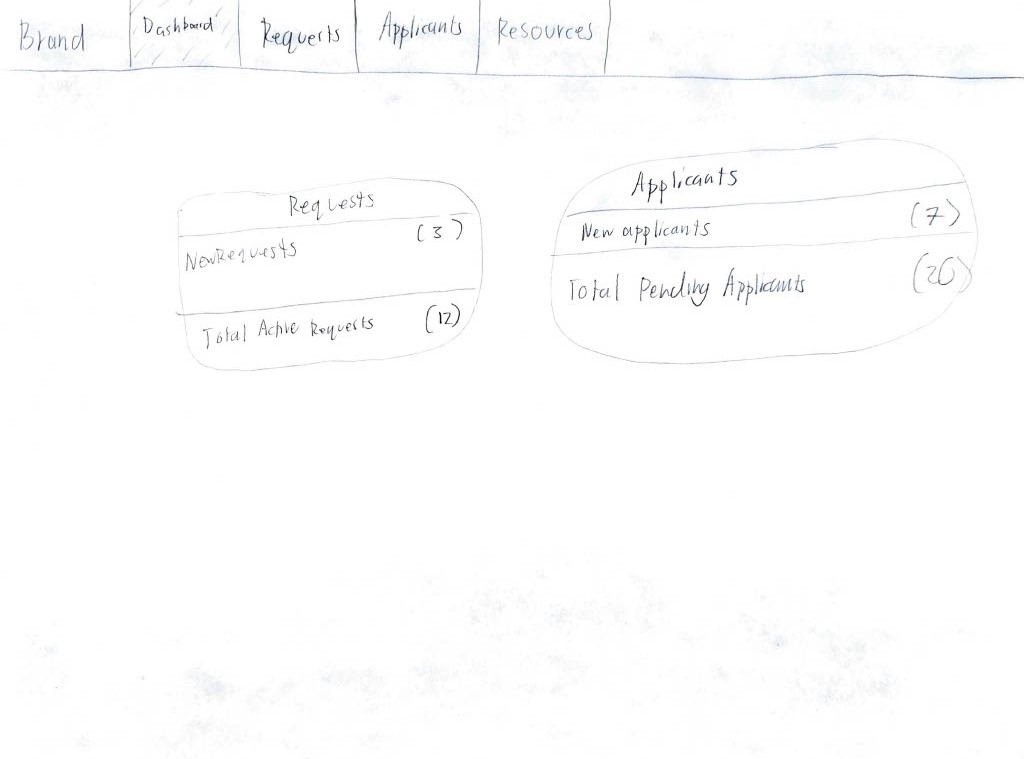 Brand
Dashboard
Requests
Applicants
Resources
Requests
New Requests (3)
Total Active Requests (12)
Applicants
New applicants (7)
Total Pending Applicants (20)